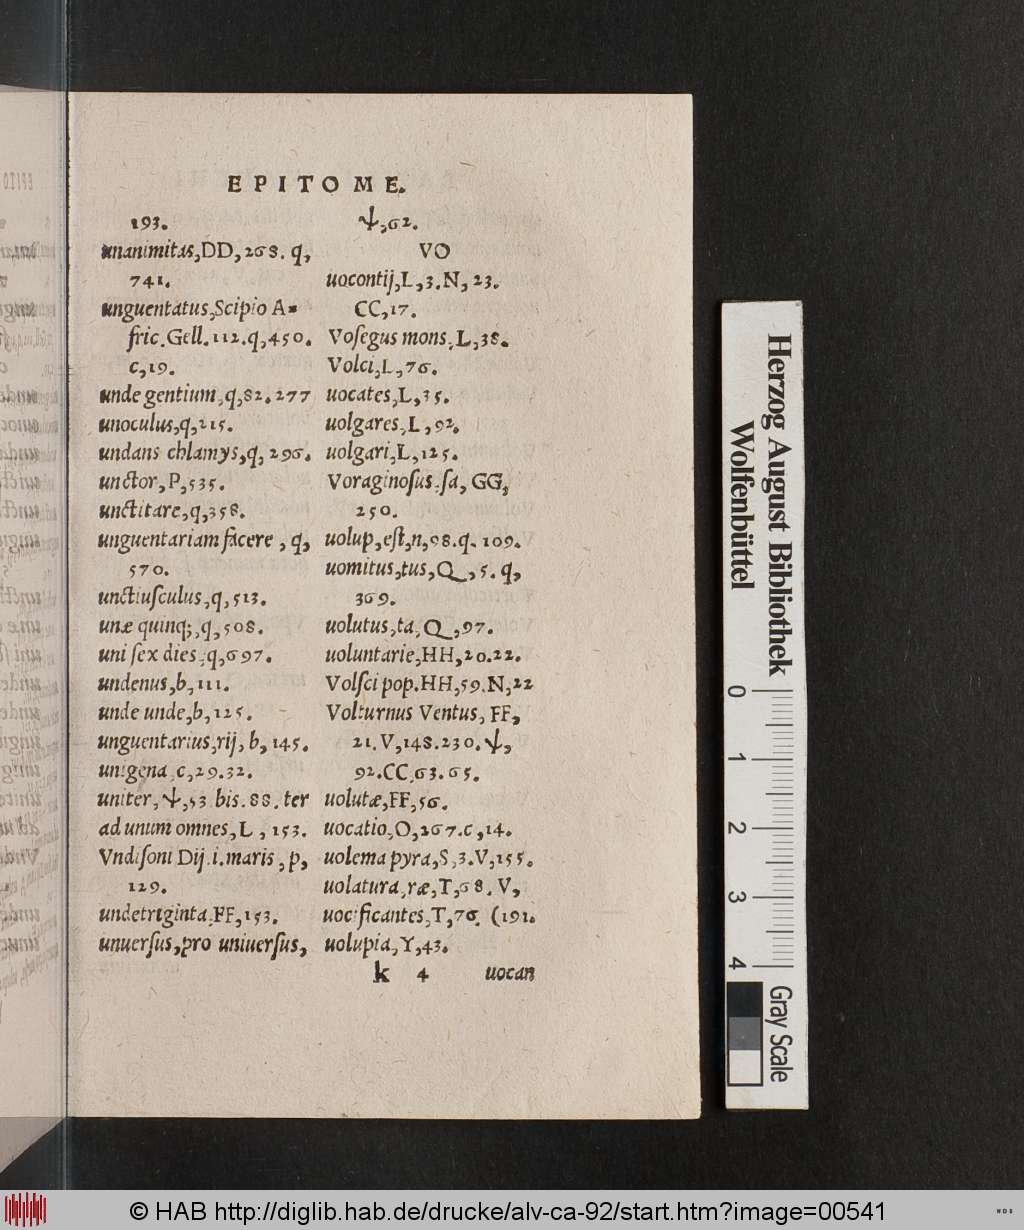 EPITOME.
193.
unanimitas,DD,268. q,
741.
unguentatus,Scipio A-
fric.Gell.112.q,450.
c,19.
unde gentium,q,82.277
unoculus,q,215.
undans chlamys,q,296.
unctor,P,535.
unctitare,q,358.
unguentariam facere , q,
570.
unctiuſculus,q,513.
unæ quinq;,q,508.
uni ſex dies,q,697.
undenus,b,111.
unde unde,b,125.
unguentarius,rij, b,145.
unigena,c,29.32.
uniter,Ψ,53 bis.88.ter
ad unum omnes,L , 153.
Vndiſoni Dij .i.maris , p,
129.
undetriginta,FF,153.
unuerſus,pro uniuerſus,
Ψ,62.
VO
uocontij,L,3.N,23.
CC,17.
Voſegus mons,L,38.
Volci,L,76.
uocates,L,35.
uolgares,L,92.
uolgari,L,125.
Voraginoſus,ſa, GG,
250.
uolup,eſt,n,98.q.109.
uomitus,tus,Q,5. q,
369.
uolutus,ta,Q,97.
uoluntarie,HH,20.22.
Volſci pop.HH,59.N,22
Volturnus Ventus, FF,
21.V,148.230.Ψ,
92.CC,63.65.
uolutæ,FF,56.
uocatio,O,267.c,14.
uolema pyra,S,3.V,155.
uolatura,ræ,T,68. V,
uocificantes,T,76. (191.
uolupia,Y,43.
k 4 uocan
Herzog August Bibliothek
Wolfenbüttel
0 1 2 3 4
Gray Scale
© HAB http://diglib.hab.de/drucke/alv-ca-92/start.htm?image=00541